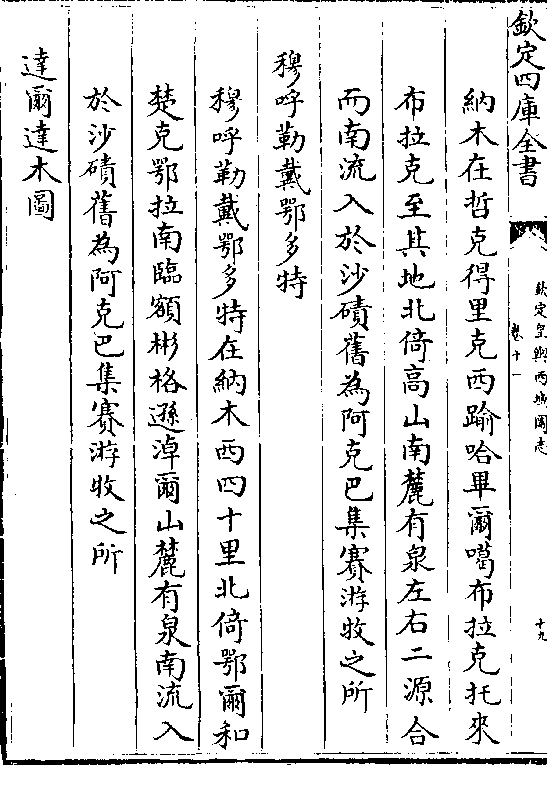 欽定四庫全書
欽定皇輿西域圖志
卷十一
十九
納木在哲克得里克西踰哈畢爾噶布拉克托來
布拉克至其地北倚高山南麓有泉左右二源合
而南流入於沙磧舊為阿克巴集賽游牧之所
穆呼勒戴鄂多特
穆呼勒戴鄂多特在納木西四十里北倚鄂爾和
楚克鄂拉南臨額彬格遜淖爾山麓有泉南流入
於沙磧舊為阿克巴集賽游牧之所
達爾達木圖